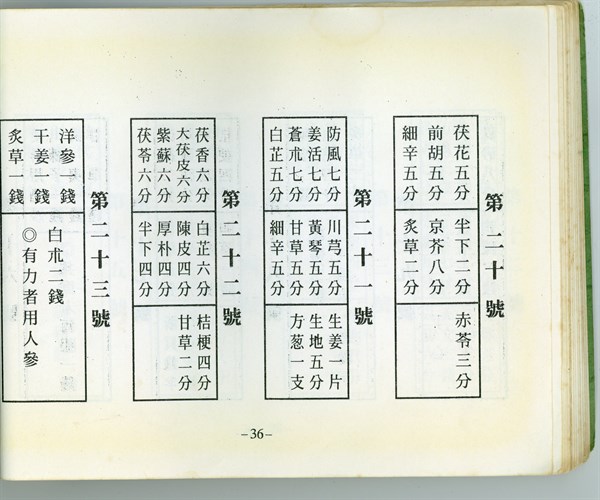 第二十號
茯花五分 半下二分 赤苓三分
前胡五分 京芥八分
細辛五分 炙草二分
第二十一號
防風七分 川芎五分 生姜一片
姜活七分 黃琴五分 生地五分
蒼朮七分 甘草五分 方葱一支
白芷五分 細辛五分
第二十二號
茯香六分 白芷六分 桔梗四分
大茯皮六分 陳皮四分 甘草二分
紫蘇六分 厚朴四分
茯苓六分 半下四分
第二十三號
洋參一錢 白朮二錢
干姜一錢 ◎有力者用人參
炙草一錢
-36-